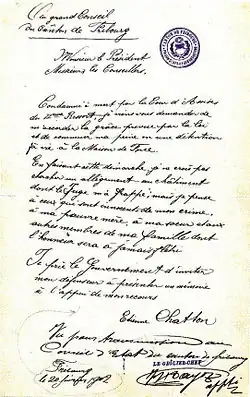 Au grand Conseil
du Canton de Fribourg
Monsieur le Président
Messieurs les Conseillers.
Condamné à mort par la Cour d'Assises
du je viens vous demander de
m'accorder la grâce prévue par la loi
et de commuer ma peine en une détention
à vie à la Maison de Force.
En faisant cette démarche, je ne crois pas
chercher un allégement au châtiment
dont le Juge m'a frappé; mais je pense
à ceux qui sont innocents de mon crime,
à ma pauvre mère, à ma soeur et aux
autres membres de ma famille dont
l'honneur sera à jamais flétri.
Je prie le Gouvernement d'inviter
mon défenseur à présenter un mémoire
à l'appui de mon recours
Etienne Chatton
Vu pour transmission au
Conseil d'Etat du canton de Fribourg
LE GEÔLIER-CHEF
Fribourg
le 20 1902